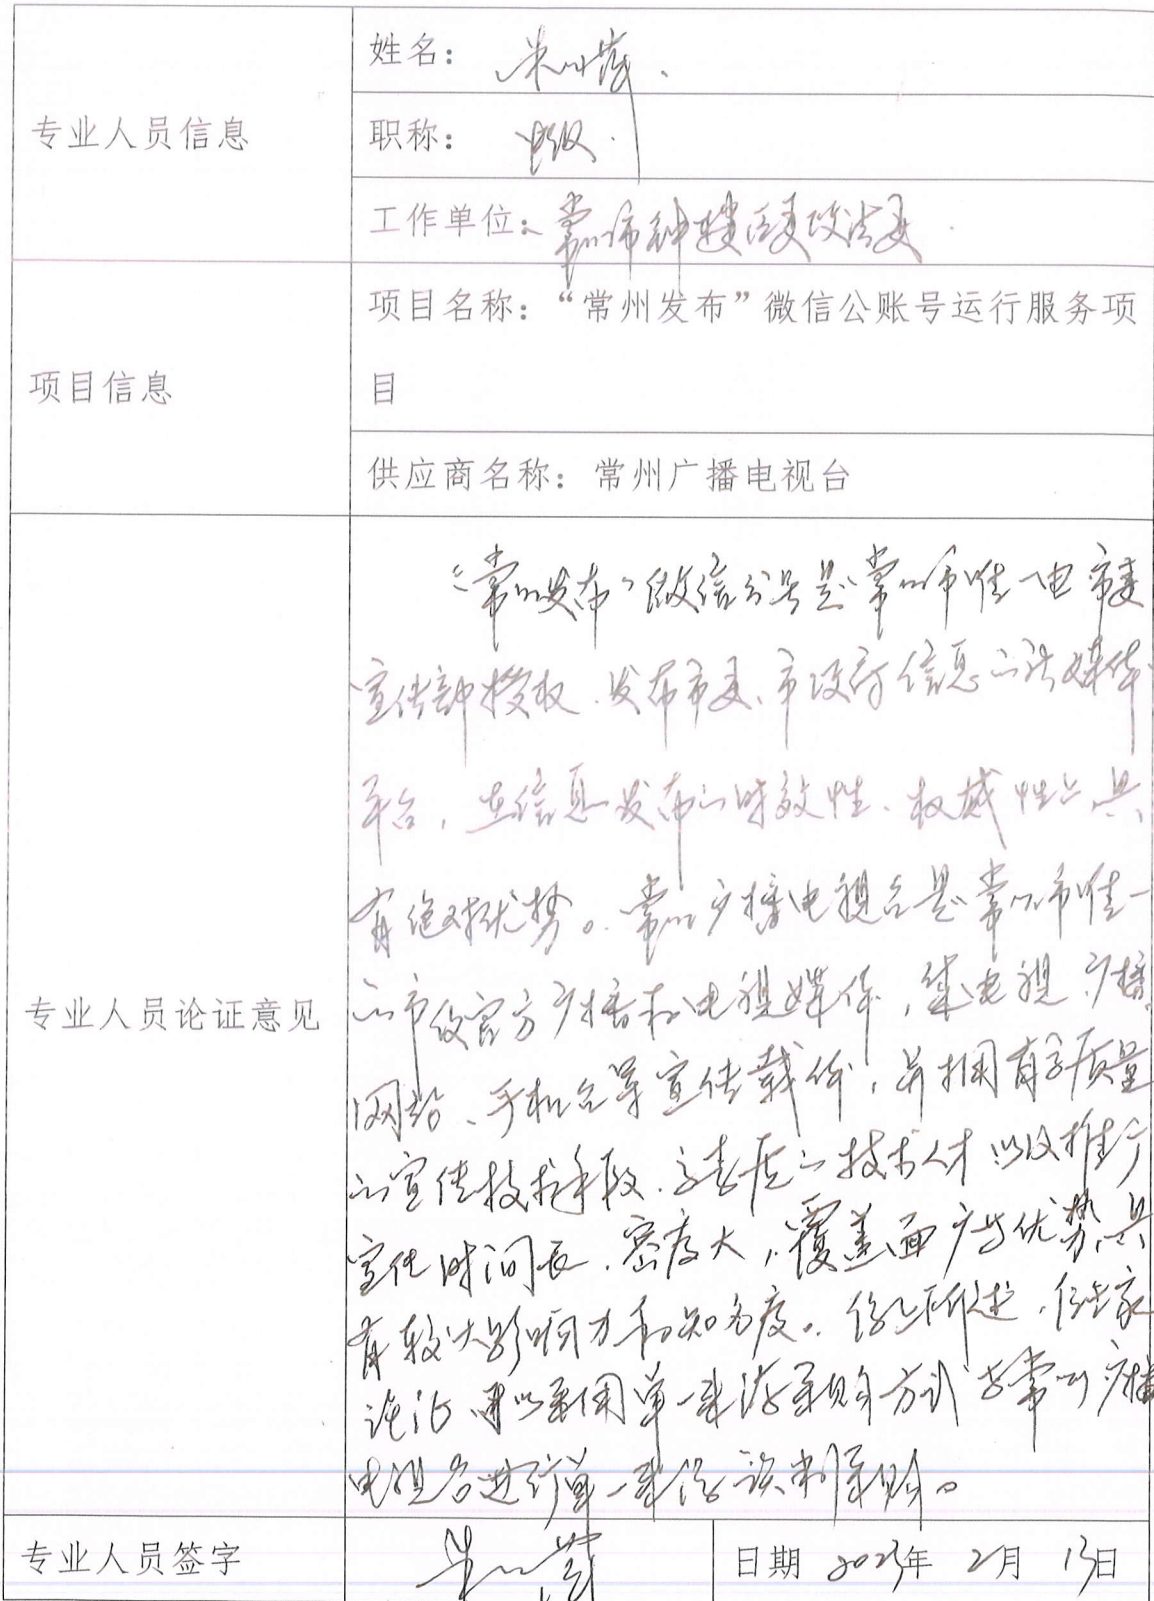 专业人员信息
姓名：
职称：
工作单位：常州市钟楼区委政法委
项目信息
项目名称：“常州发布”微信公账号运行服务项
目
供应商名称：常州广播电视台
专业人员论证意见
“常州发布”微信公号是常州市唯一由市委
宣传部授权、发布市委、市政府信息的新媒体
平台，在信息发布的时效性、权威性上具
有绝对优势。常州广播电视台是常州市唯一
的市级官方广播和电视媒体，集电视、广播、
网站、手机台等宣传载体，并拥有高质量
的宣传技术手段、高素质的技术人才以及推广
宣传时间长、密度大，覆盖面广等优势，具
有较大影响力和知名度。综上所述，经专家
论证可以采用单一来源采购方式与常州广播
电视台进行单一来源谈判采购。
专业人员签字
日期 2023年 2月 13日